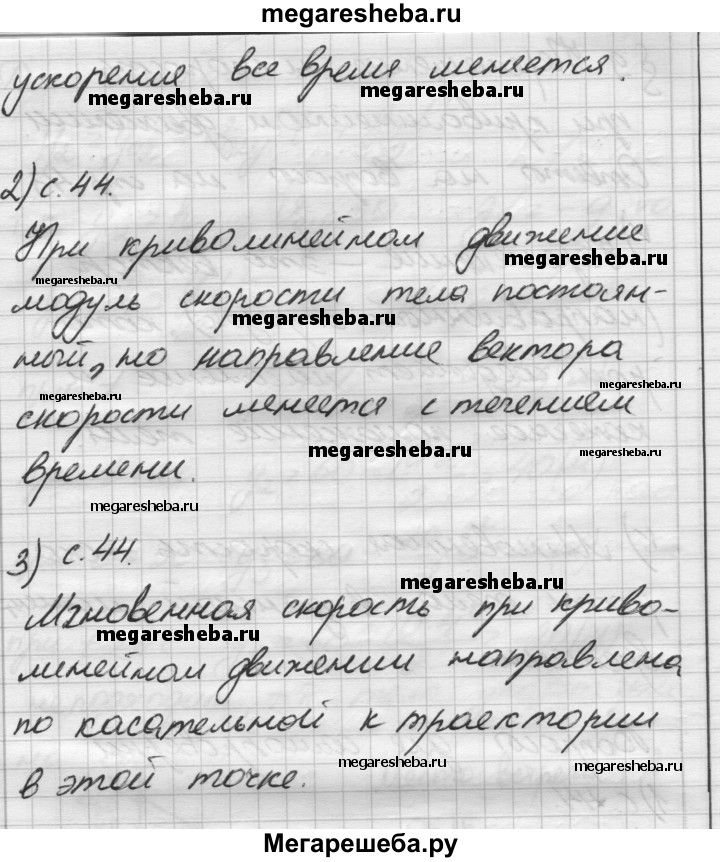 megaresheba.ru
ускорения все время меняется.
megaresheba.ru megaresheba.ru
2) с. 44.
При криволинейном движение
megaresheba.ru
megaresheba.ru
модуль скорости тела постоян-
megaresheba.ru
ный, но направление вектора
megaresheba.ru
megaresheba.ru
скорости меняется с течением
megaresheba.ru
времени.
megaresheba.ru
3) с. 44.
megaresheba.ru
Мгновенная скорость при криво-
megaresheba.ru
линейном движении направлена
по касательной к траектории
megaresheba.ru megaresheba.ru
в этой точке.
Мегарешеба.ру